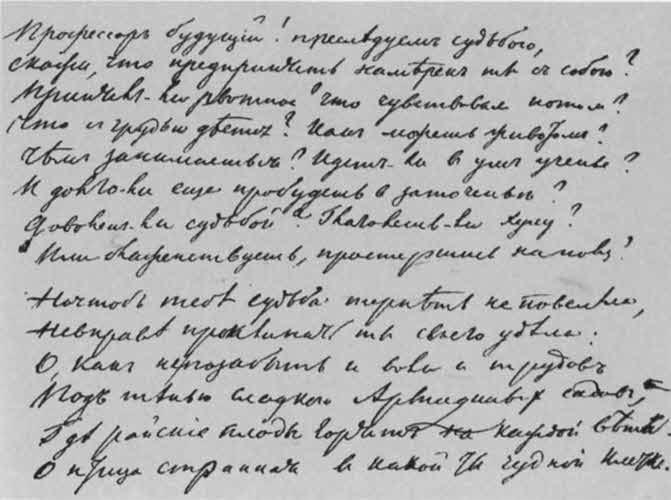 Профессоръ будущій! преслѣдуемъ судьбою,
скажи, что предпринять намѣренъ ты съ собою?
Принялъ-ли рвотное что чувствовалъ потомъ?
Что съ грудью дѣется? Какъ можешь животомъ?
Чѣмъ занимаешься? Идетъ-ли въ умъ ученье?
И долго-ли еще пробудешь въ заточеньи?
Доволенъ-ли судьбой? ли ?
Или блаженствуешь, простершись на полу?
Начтобъ тебѣ судьба терпѣть не повелѣла,
Невправѣ проклинать ты своего удѣла:
О, какъ непозабыть и трудовъ
Подъ тѣнью сладкою Армидиныхъ садовъ,
Гдѣ райскіе плоды горятъ на каждой вѣтке
О птица странная въ какой ты чудной клѣтке.